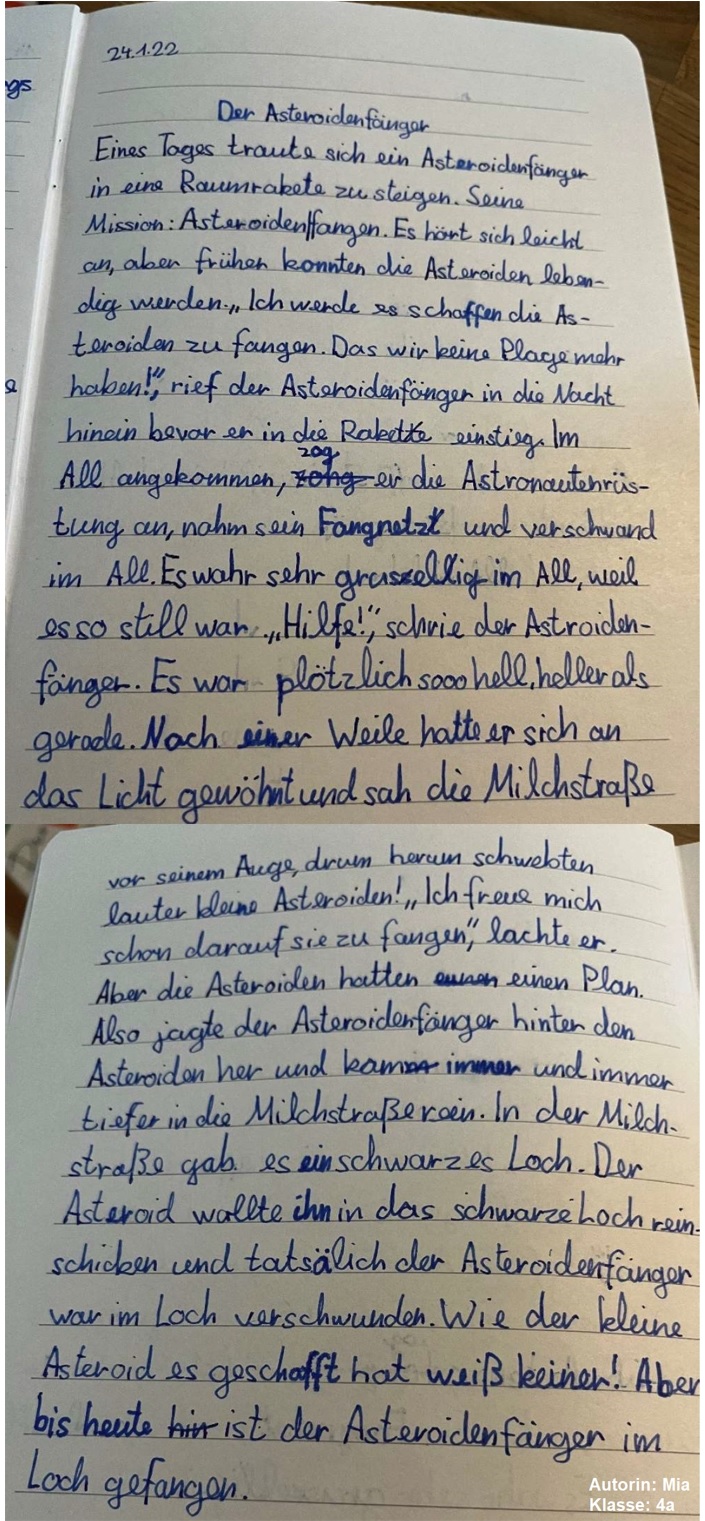 24.1.22
gs
Der Asteroidenfänger
Eines Tages traute sich ein Asteroidenfänger
in eine Raumrakete zu steigen. Seine
Mission: Asteroidenffangen. Es hört sich leicht
an, aber früher konnten die Asteroiden leben-
dig werden. „Ich werde es schaffen die As-
teroiden zu fangen. Das wir keine Plage mehr
haben!“, rief der Asteroidenfänger in die Nacht
hinein bevor er in die Rakette einstieg. Im
zog
All angekommen, zohg er die Astronautenrüs-
tung an, nahm sein Fangnetzt und verschwand
im All. Es wahr sehr gruszellig im All, weil
es so still war. „Hilfe!“, schrie der Astroiden-
fänger. Es war plötzlich sooo hell, heller als
gerade. Nach einer Weile hatte er sich an
das Licht gewöhnt und sah die Milchstraße
vor seinem Auge, drum herum schwebten
lauter kleine Asteroiden! „Ich freue mich
schon darauf sie zu fangen“, lachte er.
Aber die Asteroiden hatten einen Plan.
Also jagte der Asteroidenfänger hinter den
Asteroiden her und kam immer und immer
tiefer in die Milchstraße rein. In der Milch-
straße gab es ein schwarzes Loch. Der
Asteroid wollte ihn in das schwarze Loch rein-
schicken und tatsälich der Asteroidenfänger
war im Loch verschwunden. Wie der kleine
Asteroid es geschafft hat weiß keiner! Aber
bis heute hin ist der Asteroidenfänger im
Loch gefangen.
Autorin: Mia
Klasse: 4a